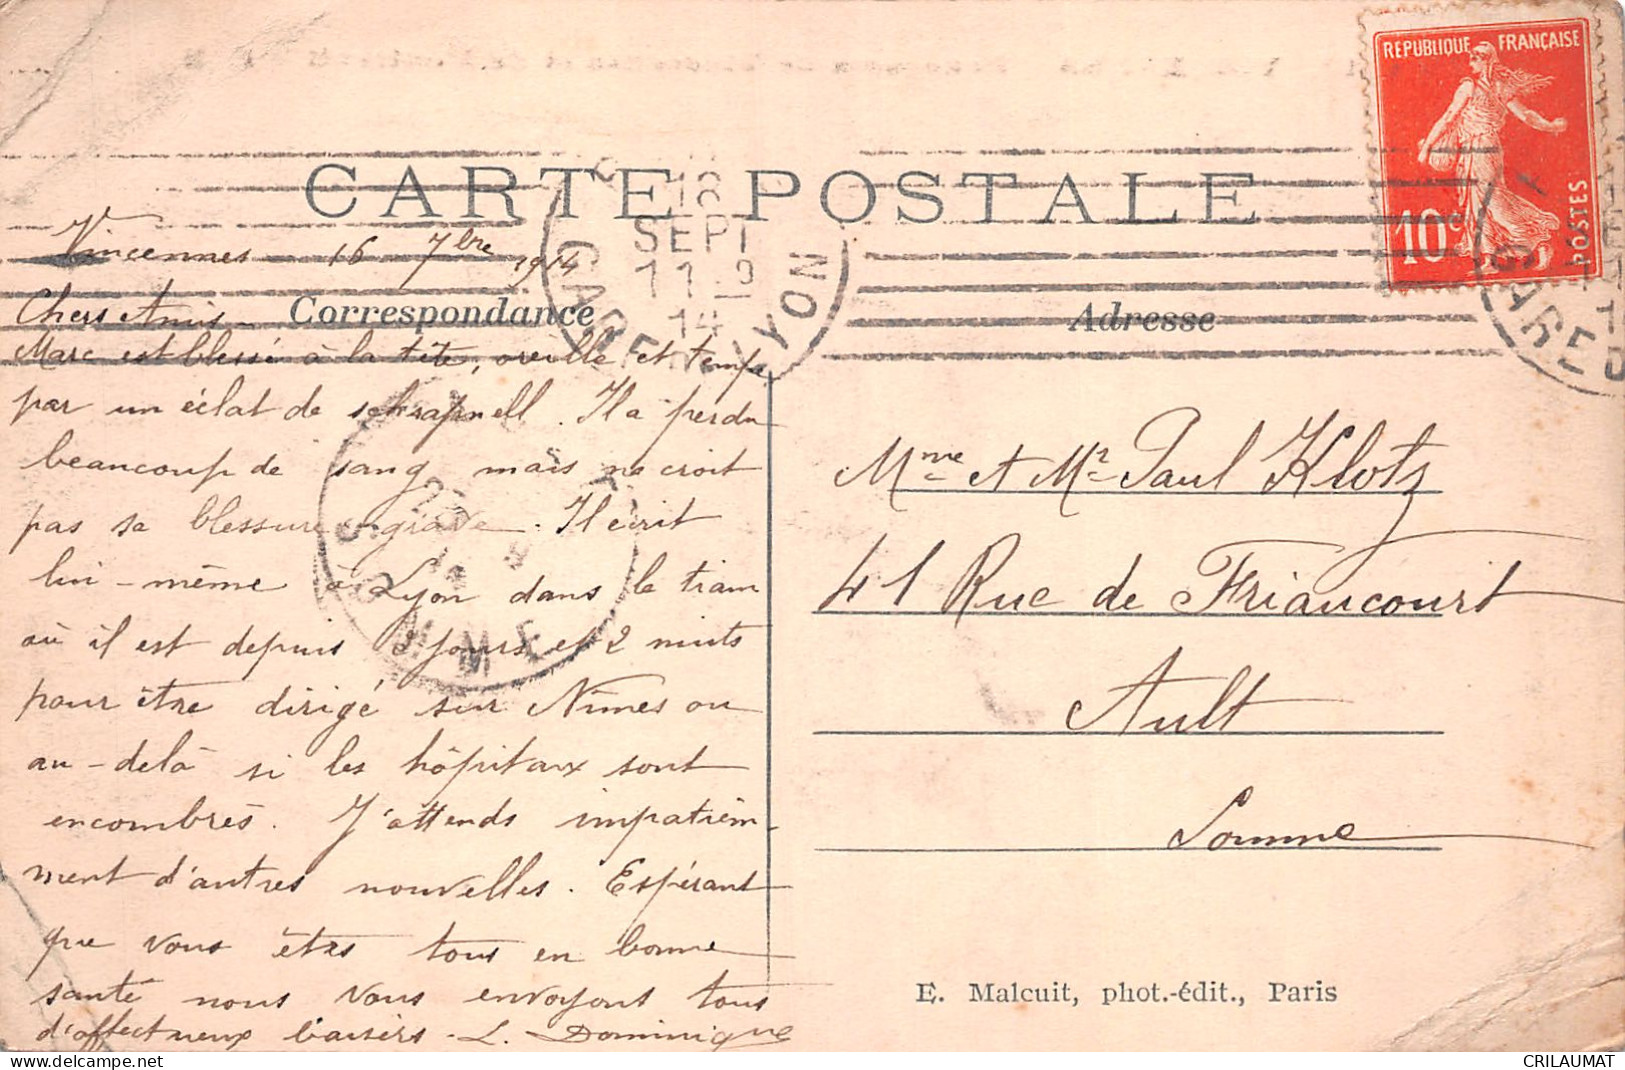 REPUBLIQUE FRANÇAISE
10c
POSTES
CARTE POSTALE
18
SEPT
14
GARE LYON
GARE D
Vincennes 16 7bre 1914
Correspondance
Adresse
Chers Amis
Marc est blessé à la tête, oreille et tempe
par un éclat de schrapnell. Il a perdu
beaucoup de sang mais ne croit
pas sa blessure grave. Il écrit
lui-même à Lyon dans le train
où il est depuis 3 jours et 2 nuits
pour être dirigé sur Nîmes ou
au-delà si les hôpitaux sont
encombrés. J'attends impatiem-
ment d'autres nouvelles. Espérant
que vous êtes tous en bonne
santé nous vous envoyons tous
d'affectueux baisers - L. Dominique
SOMME
Mme et Mr Paul Klotz
41 Rue de Friancourt
Ault
Somme
E. Malcuit, phot.-édit., Paris
delcampe.net
CRILAUMAT